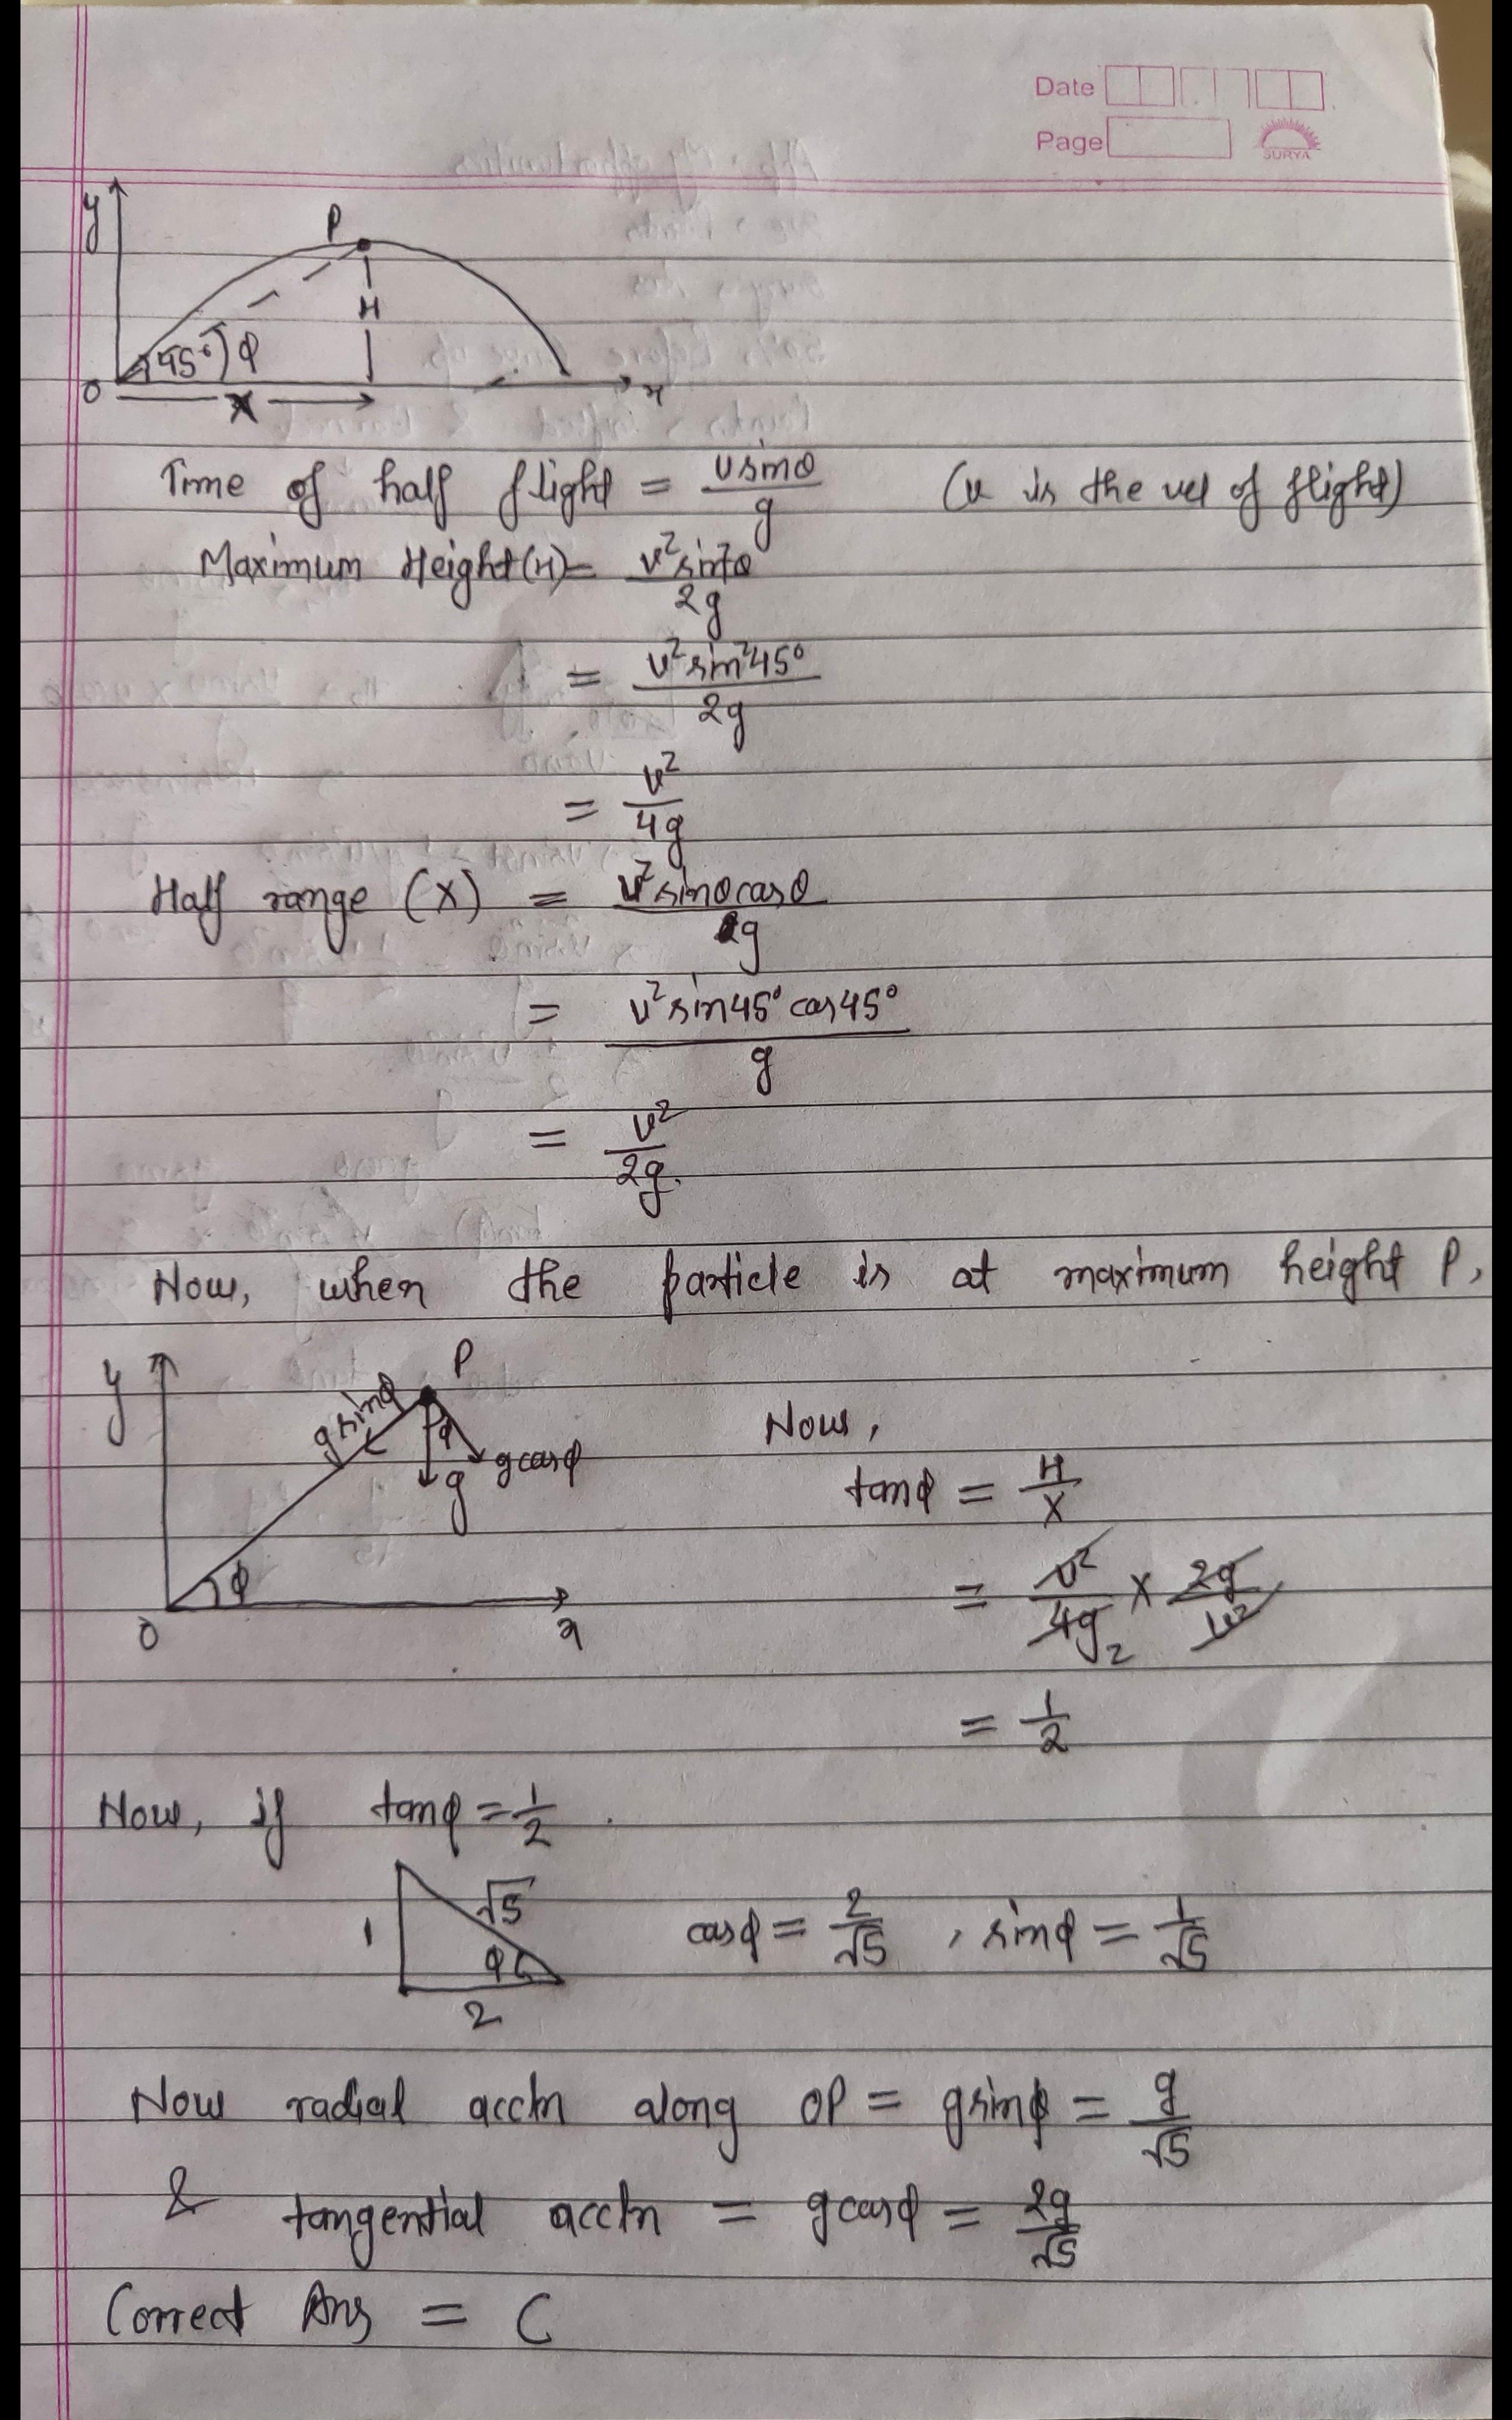 Date
Page
SURYA
y
P
H
45° φ
O
X
x
Time of half flight = usinθ/g (u is the vel of flight)
Maximum Height(H) = u²sin²θ/2g
= u²sin²45°/2g
= u²/4g
Half range (X) = u²sinθcosθ/g
= u²sin45°cos45°/g
= u²/2g.
Now, when the particle is at maximum height P,
y
P
gsinφ
φ
gcosφ
g
φ
O
x
Now,
tanφ = H/X
= u²/4g₂ × 2g/u²
= 1/2
Now, if tanφ = 1/2 .
1
√5
φ
2
cosφ = 2/√5 , sinφ = 1/√5
Now radial accln along OP = gsinφ = g/√5
& tangential accln = gcosφ = 2g/√5
Correct Ans = C